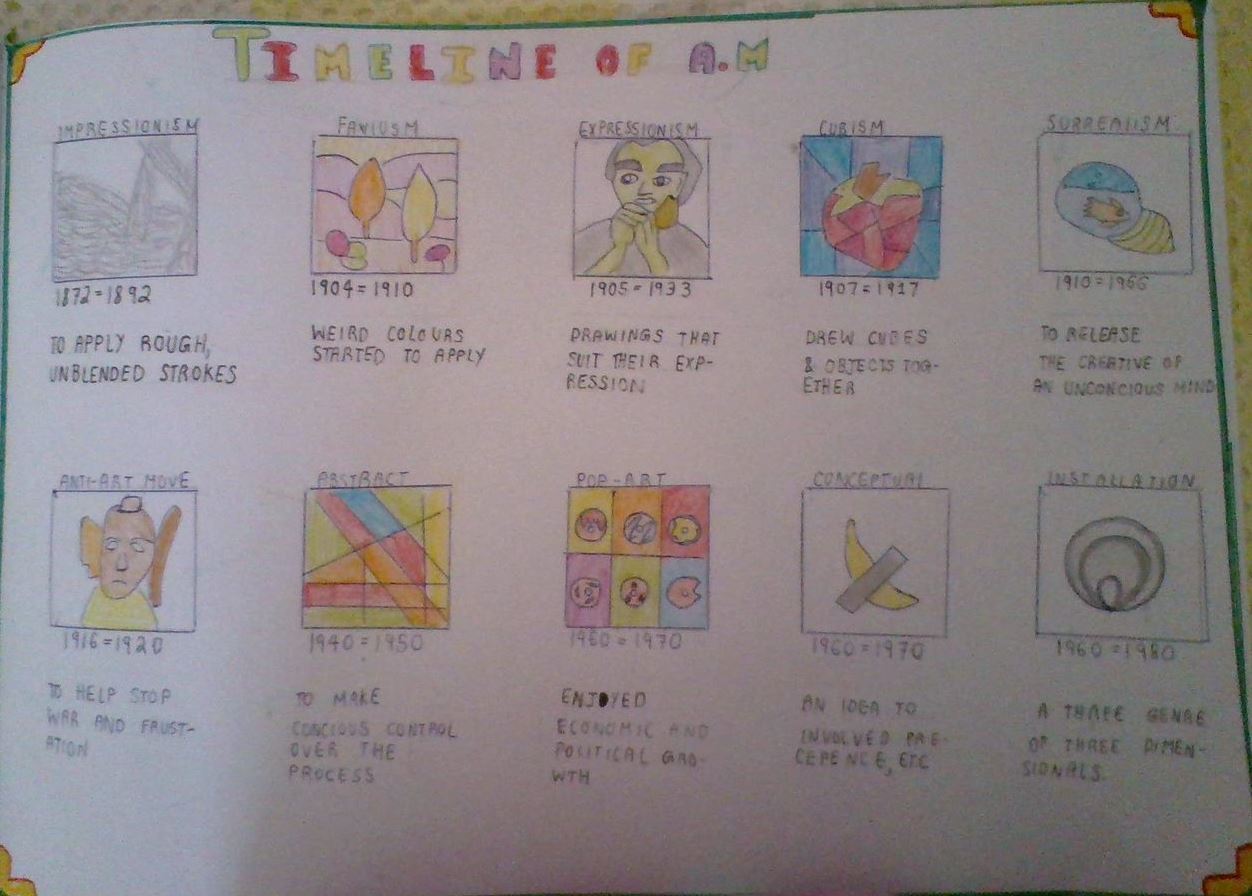 TIMELINE OF A.M
IMPRESSIONISM
1872=1892
TO APPLY ROUGH,
UNBLENDED STROKES
FAVIUSM
1904=1910
WEIRD COLOURS
STARTED TO APPLY
EXPRESSIONISM
1905=1933
DRAWINGS THAT
SUIT THEIR EXP-
RESSION
CUBISM
1907=1917
DREW CUBES
& OBJECTS TOG-
ETHER
SURREALISM
1910=1966
TO RELEASE
THE CREATIVE OF
AN UNCONCIOUS MIND
ANTI-ART MOVE
1916=1920
TO HELP STOP
WAR AND FRUST-
ATION
ABSTRACT
1940=1950
TO MAKE
CONCIOUS CONTROL
OVER THE
PROCESS
POP-ART
1960=1970
ENJOYED
ECONOMIC AND
POLITICAL GRO-
WTH
CONCEPTUAL
1960=1970
AN IDEA TO
INVOLVED PRE-
CEPENCE, ETC
INSTALLATION
1960=1980
A THAPE GENRE
OF THREE DIMEN-
SIONALS.